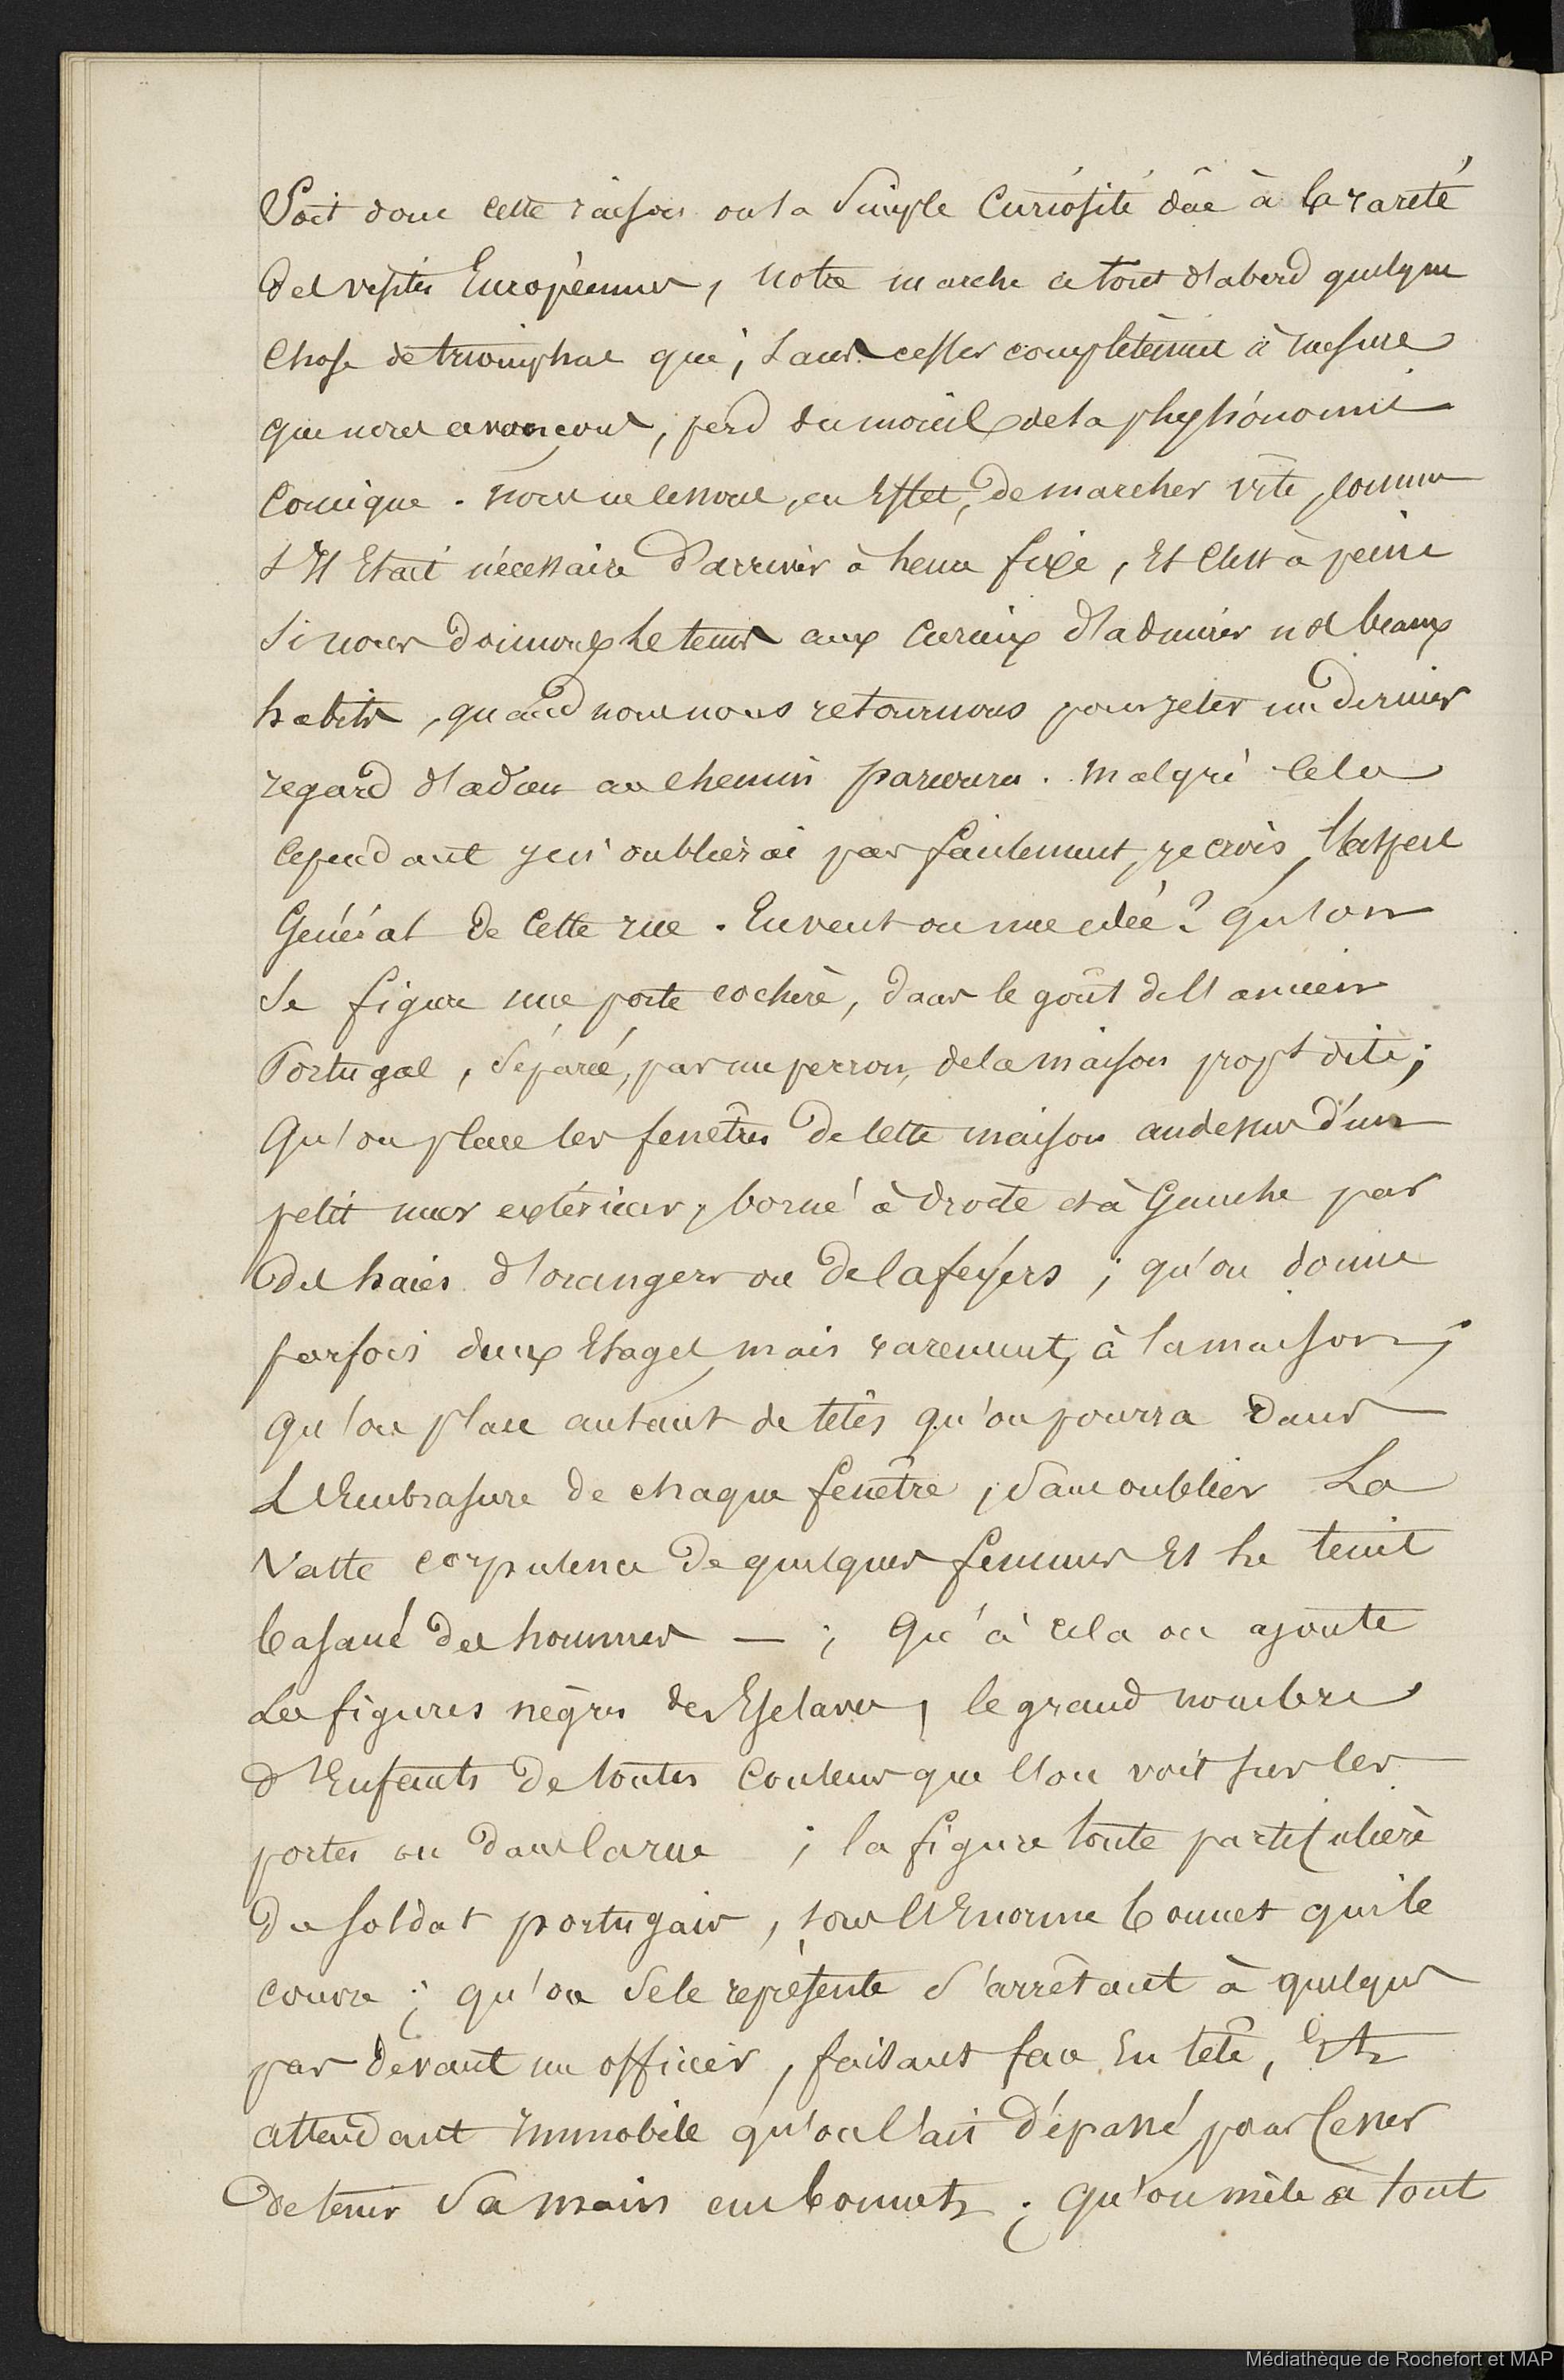 Soit donc cette raison ou la simple Curiosité dûe à la rareté
des visites Européennes, notre marche a tout d'abord quelque
Chose de triomphal qui, sans cesser complètement à mesure
que nous avançons, perd du moins de la physionomie
Comique. Nous ne cessons, en Effet, de marcher vite, comme
s'Il Etait nécessaire d'arriver à heure fixe, Et C'est à peine
si nous donnons le temps aux Curieux d'admirer nos beaux
habits, quand nous nous retournons pour jeter un dernier
regard d'adieu au chemin parcouru. Malgré Cela
Cependant je n'oublierai pas facilement, je crois, l'aspect
Général de Cette rue. En veut on une idée? Qu'on
se figure une porte cochère, dans le goût de l'ancien
Portugal, séparée, par un perron, de la maison propt dite;
Qu'on place les fenêtres de cette maison au dessus d'un
petit mur extérieur, borné à droite et à Gauche par
des haies d'orangers ou de Caféyers; qu'on donne
parfois deux Etages, mais rarement, à la maison;
qu'on place autant de têtes qu'on pourra dans
L'Embrasure de chaque fenêtre, sans oublier La
Vaste corpulence de quelques femmes Et le teint
basané des hommes —; Qu'à cela on ajoute
Les figures nègres des Esclaves, le grand nombre
d'Enfants de toutes Couleurs que l'on voit sur les
portes ou dans la rue ; la figure toute particulière
du soldat portugais, sous l'Enorme bonnet qui le
couvre; qu'on se le représente s'arrêtant à quelques
pas devant un officier, faisant face En tête, Et
attendant Immobile qu'on l'ait dépassé pour Cesser
de tenir sa main au bonnet; qu'on mêle à tout
Médiathèque de Rochefort et MAP